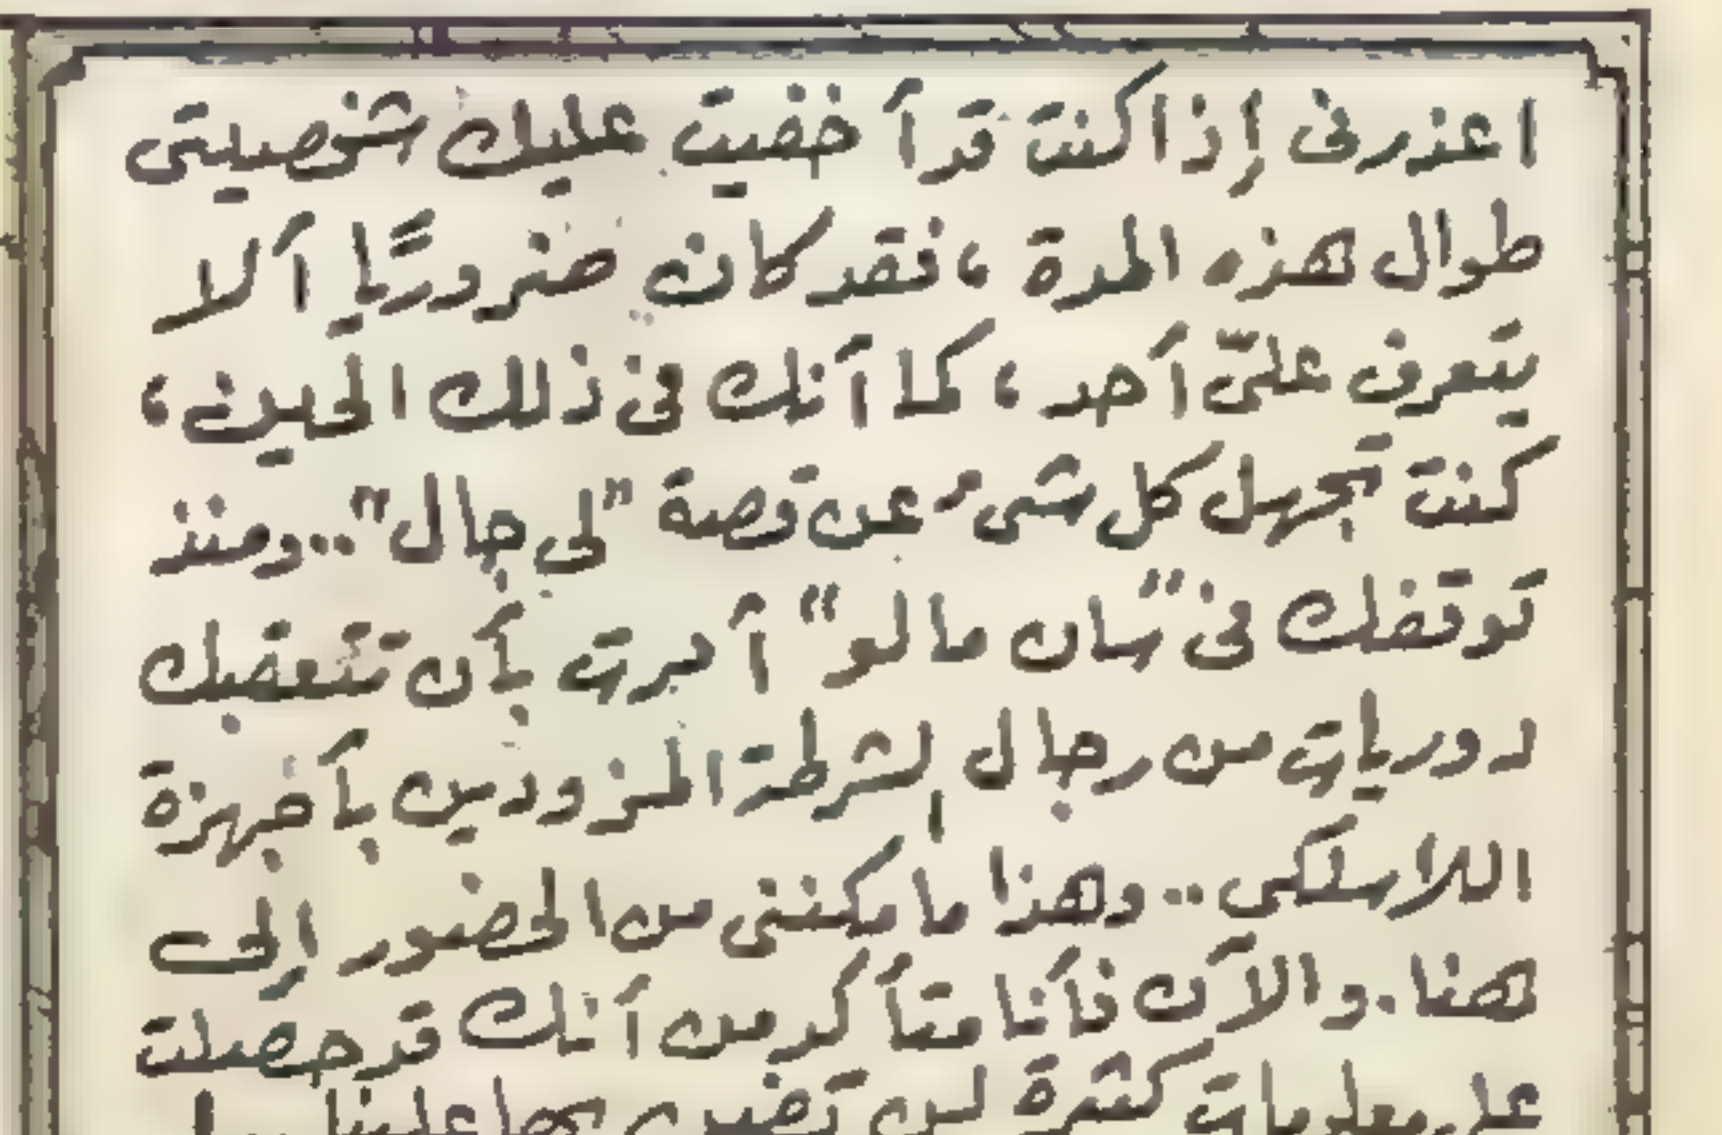 اعذرنى إذا كنت قد أخفيت عليك شخصيتى
طوال هذه المدة ، فقد كان ضروريًا ألا
يتعرف علىّ أحد ، كما أنك فى ذلك الحين ،
كنت تجهل كل شىء عن قصة "لى جال" .. ومنذ
توقفك فى "سان مالو" أمرت بأن تتعقبك
دوريات من رجال الشرطة المزودين بأجهزة
اللاسلكي .. وهذا ما مكننى من الحضور إلى
هنا . والآن فأنا متأكد من أنك قد حصلت
على معلومات كثيرة لن تضن بها علينا